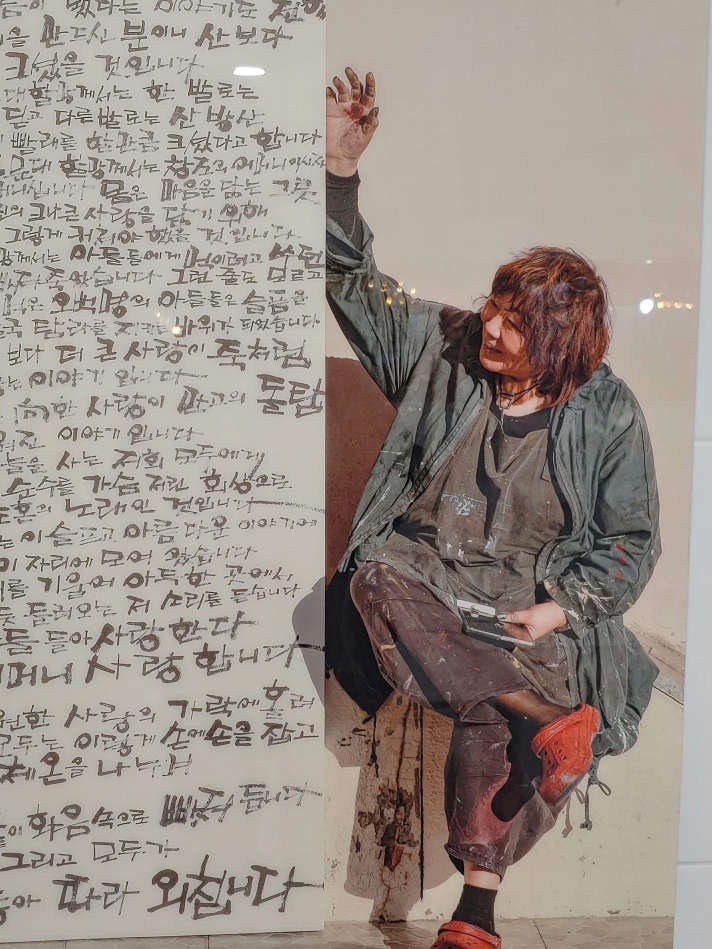 이 있다는 이야기도
을 만드신 분이니 산보다
크셨을 것입니다
한 발로는
딛고 다른 발로는 산 방산
빨래를 할 만큼 크셨다고 합니다
설문대 할망께서는 창조의 어머니이시자
몸은 마음을 담는 그릇
의 크나큰 사랑을 담기 위해
그렇게 커져야 했을 것입니다
할망께서는 아들들에게 먹이려고
그런 줄도 모르고
오백명의 아들들은 슬픔을
바위가 되었습니다
보다 더 큰 사랑이 죽처럼
이야기 입니다
향한 사랑이 만고의 돌탑
이야기 입니다
오늘을 사는 저희 모두에게
순수를 가슴 저린 회생으로
노래인 것입니다
이 슬프고 아름다운 이야기에
이 자리에 모여 있습니다
귀를 기울여 아득한 곳에서
듯 들려오는 저 소리를 듣습니다
들아 사랑한다
어머니 사랑합니다
원한 사랑의 가락에 홀려
모두는 이렇게 손에 손을 잡고
체온을 나누며
화음 속으로 빠져 듭니다
그리고 모두가
따라 외칩니다